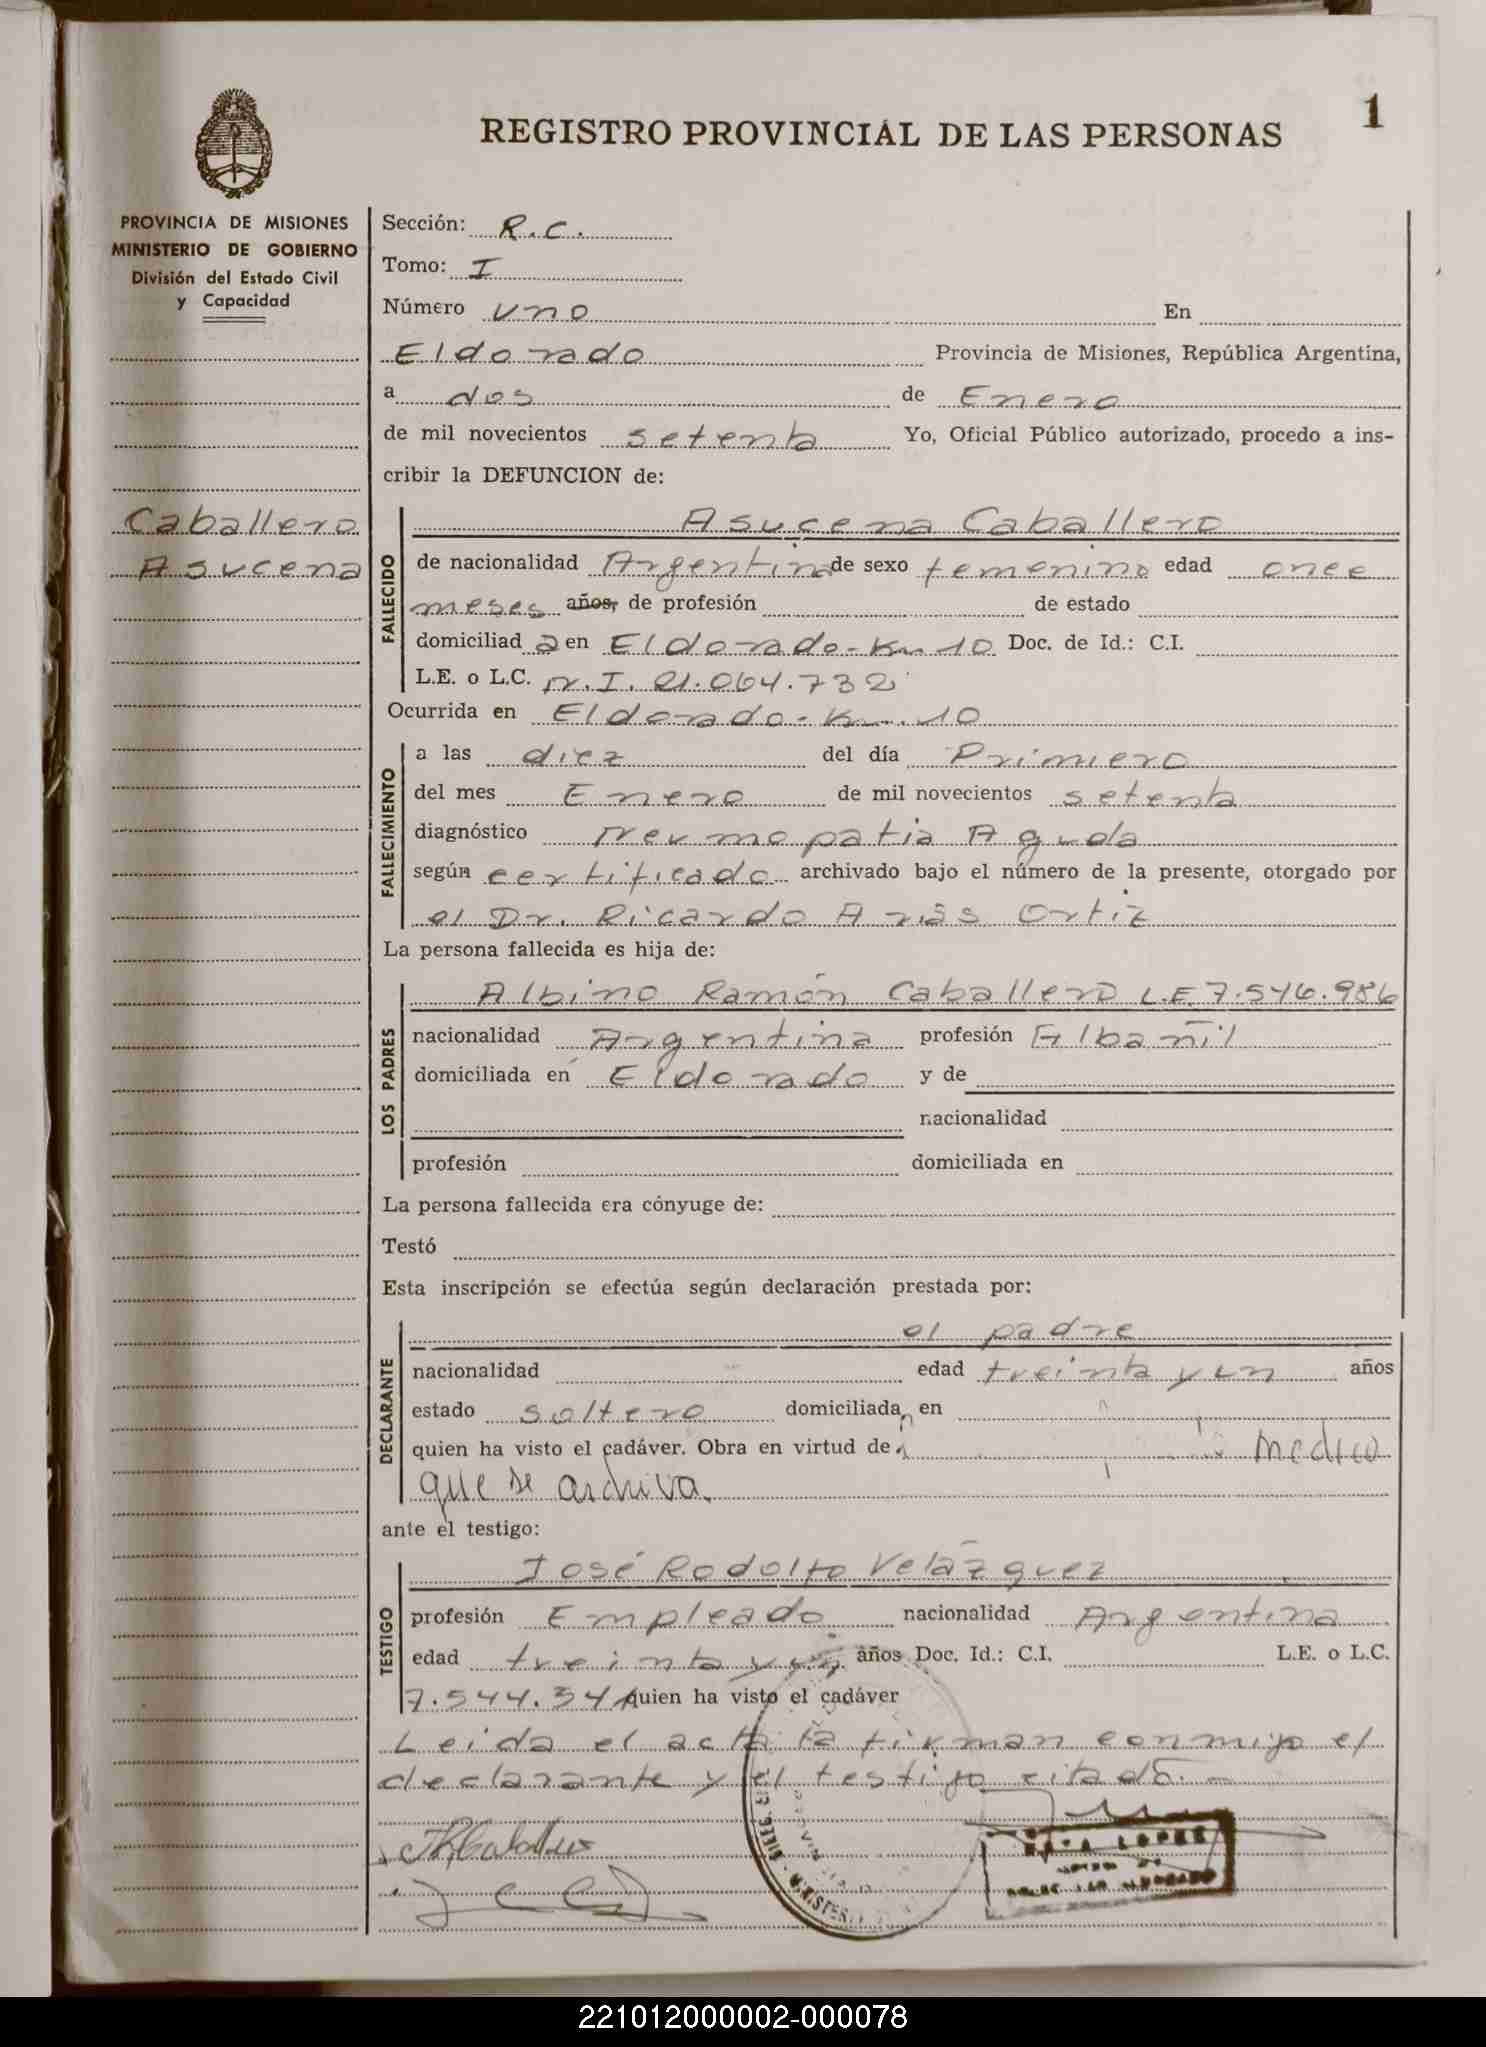 REGISTRO PROVINCIAL DE LAS PERSONAS
1
PROVINCIA DE MISIONES
MINISTERIO DE GOBIERNO
División del Estado Civil
y Capacidad
Caballero
Asucena
Sección: R.C.
Tomo: I
Número uno En
Eldorado Provincia de Misiones, República Argentina,
a dos de Enero
de mil novecientos setenta Yo, Oficial Público autorizado, procedo a ins-
cribir la DEFUNCION de:
FALLECIDO
Asucena Caballero
de nacionalidad Argentina de sexo femenino edad once
meses años, de profesión de estado
domiciliad a en Eldorado-Km 10 Doc. de Id.: C.I.
L.E. o L.C. N.I. 21.064.732
Ocurrida en Eldorado-Km. 10
FALLECIMIENTO
a las diez del día Primero
del mes Enero de mil novecientos setenta
diagnóstico Neumopatia Aguda
según certificado archivado bajo el número de la presente, otorgado por
el Dr. Ricardo Arias Ortiz
La persona fallecida es hija de:
LOS PADRES
Albino Ramón Caballero L.E. 7.546.986
nacionalidad Argentina profesión Albañil
domiciliada en Eldorado y de
nacionalidad
profesión domiciliada en
La persona fallecida era cónyuge de:
Testó
Esta inscripción se efectúa según declaración prestada por:
DECLARANTE
el padre
nacionalidad edad treinta y un años
estado soltero domiciliada en
quien ha visto el cadáver. Obra en virtud de medico
que se archiva.
ante el testigo:
TESTIGO
José Rodolfo Velázquez
profesión Empleado nacionalidad Argentina
edad treinta y un años Doc. Id.: C.I. L.E. o L.C.
7.544.341 quien ha visto el cadáver
Leida el acta la firman conmigo el
declarante y el testigo citado.-
LOPEZ
221012000002-000078